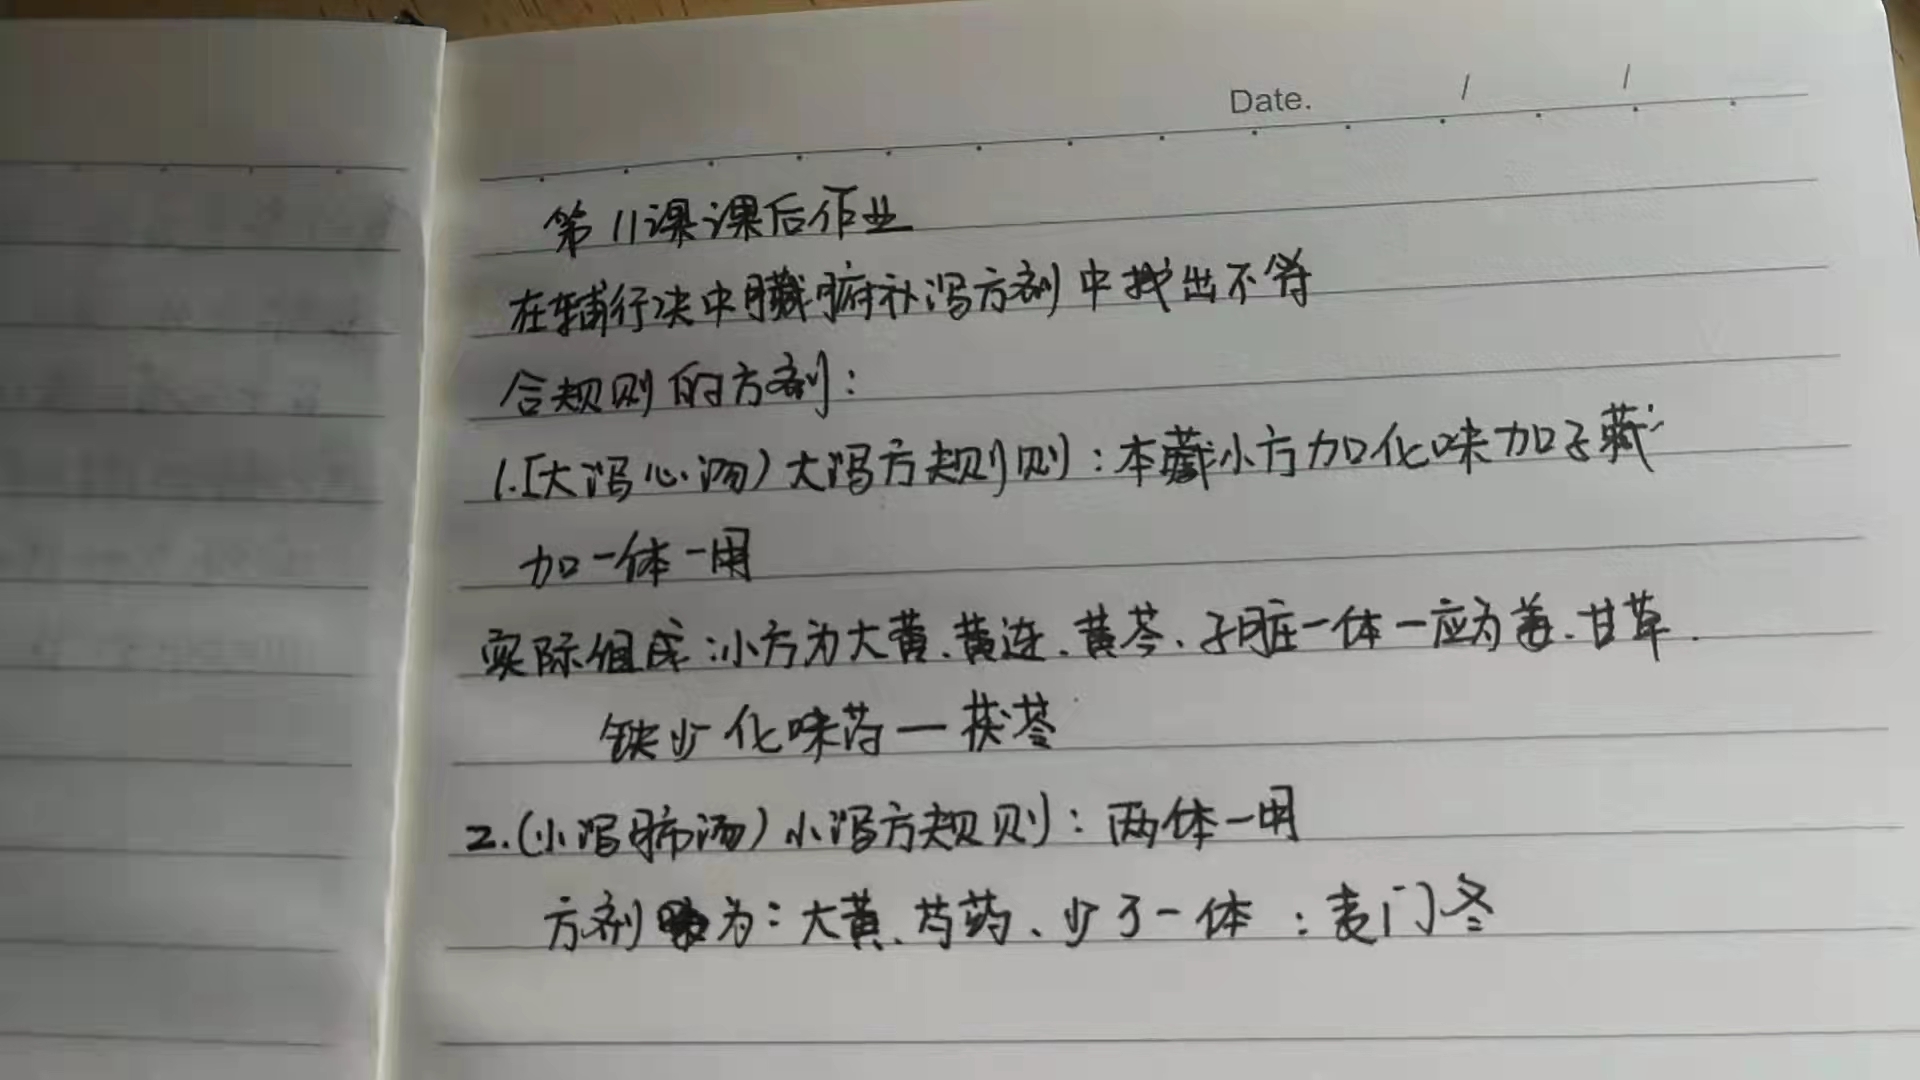 Date. / /
第11课课后作业
在辅行决中臟腑补泻方剂中找出不符
合规则的方剂:
1.[大泻心汤)大泻方规则则):本藏小方加化味加子藏
加一体一用
实际组成:小方为大黄、黄连、黄芩、子脏一体一应为姜、甘草.
缺少化味药一茯苓
2.(小泻肺汤)小泻方规则):两体一用
方剂为:大黄、芍药、少了一体:麦门冬